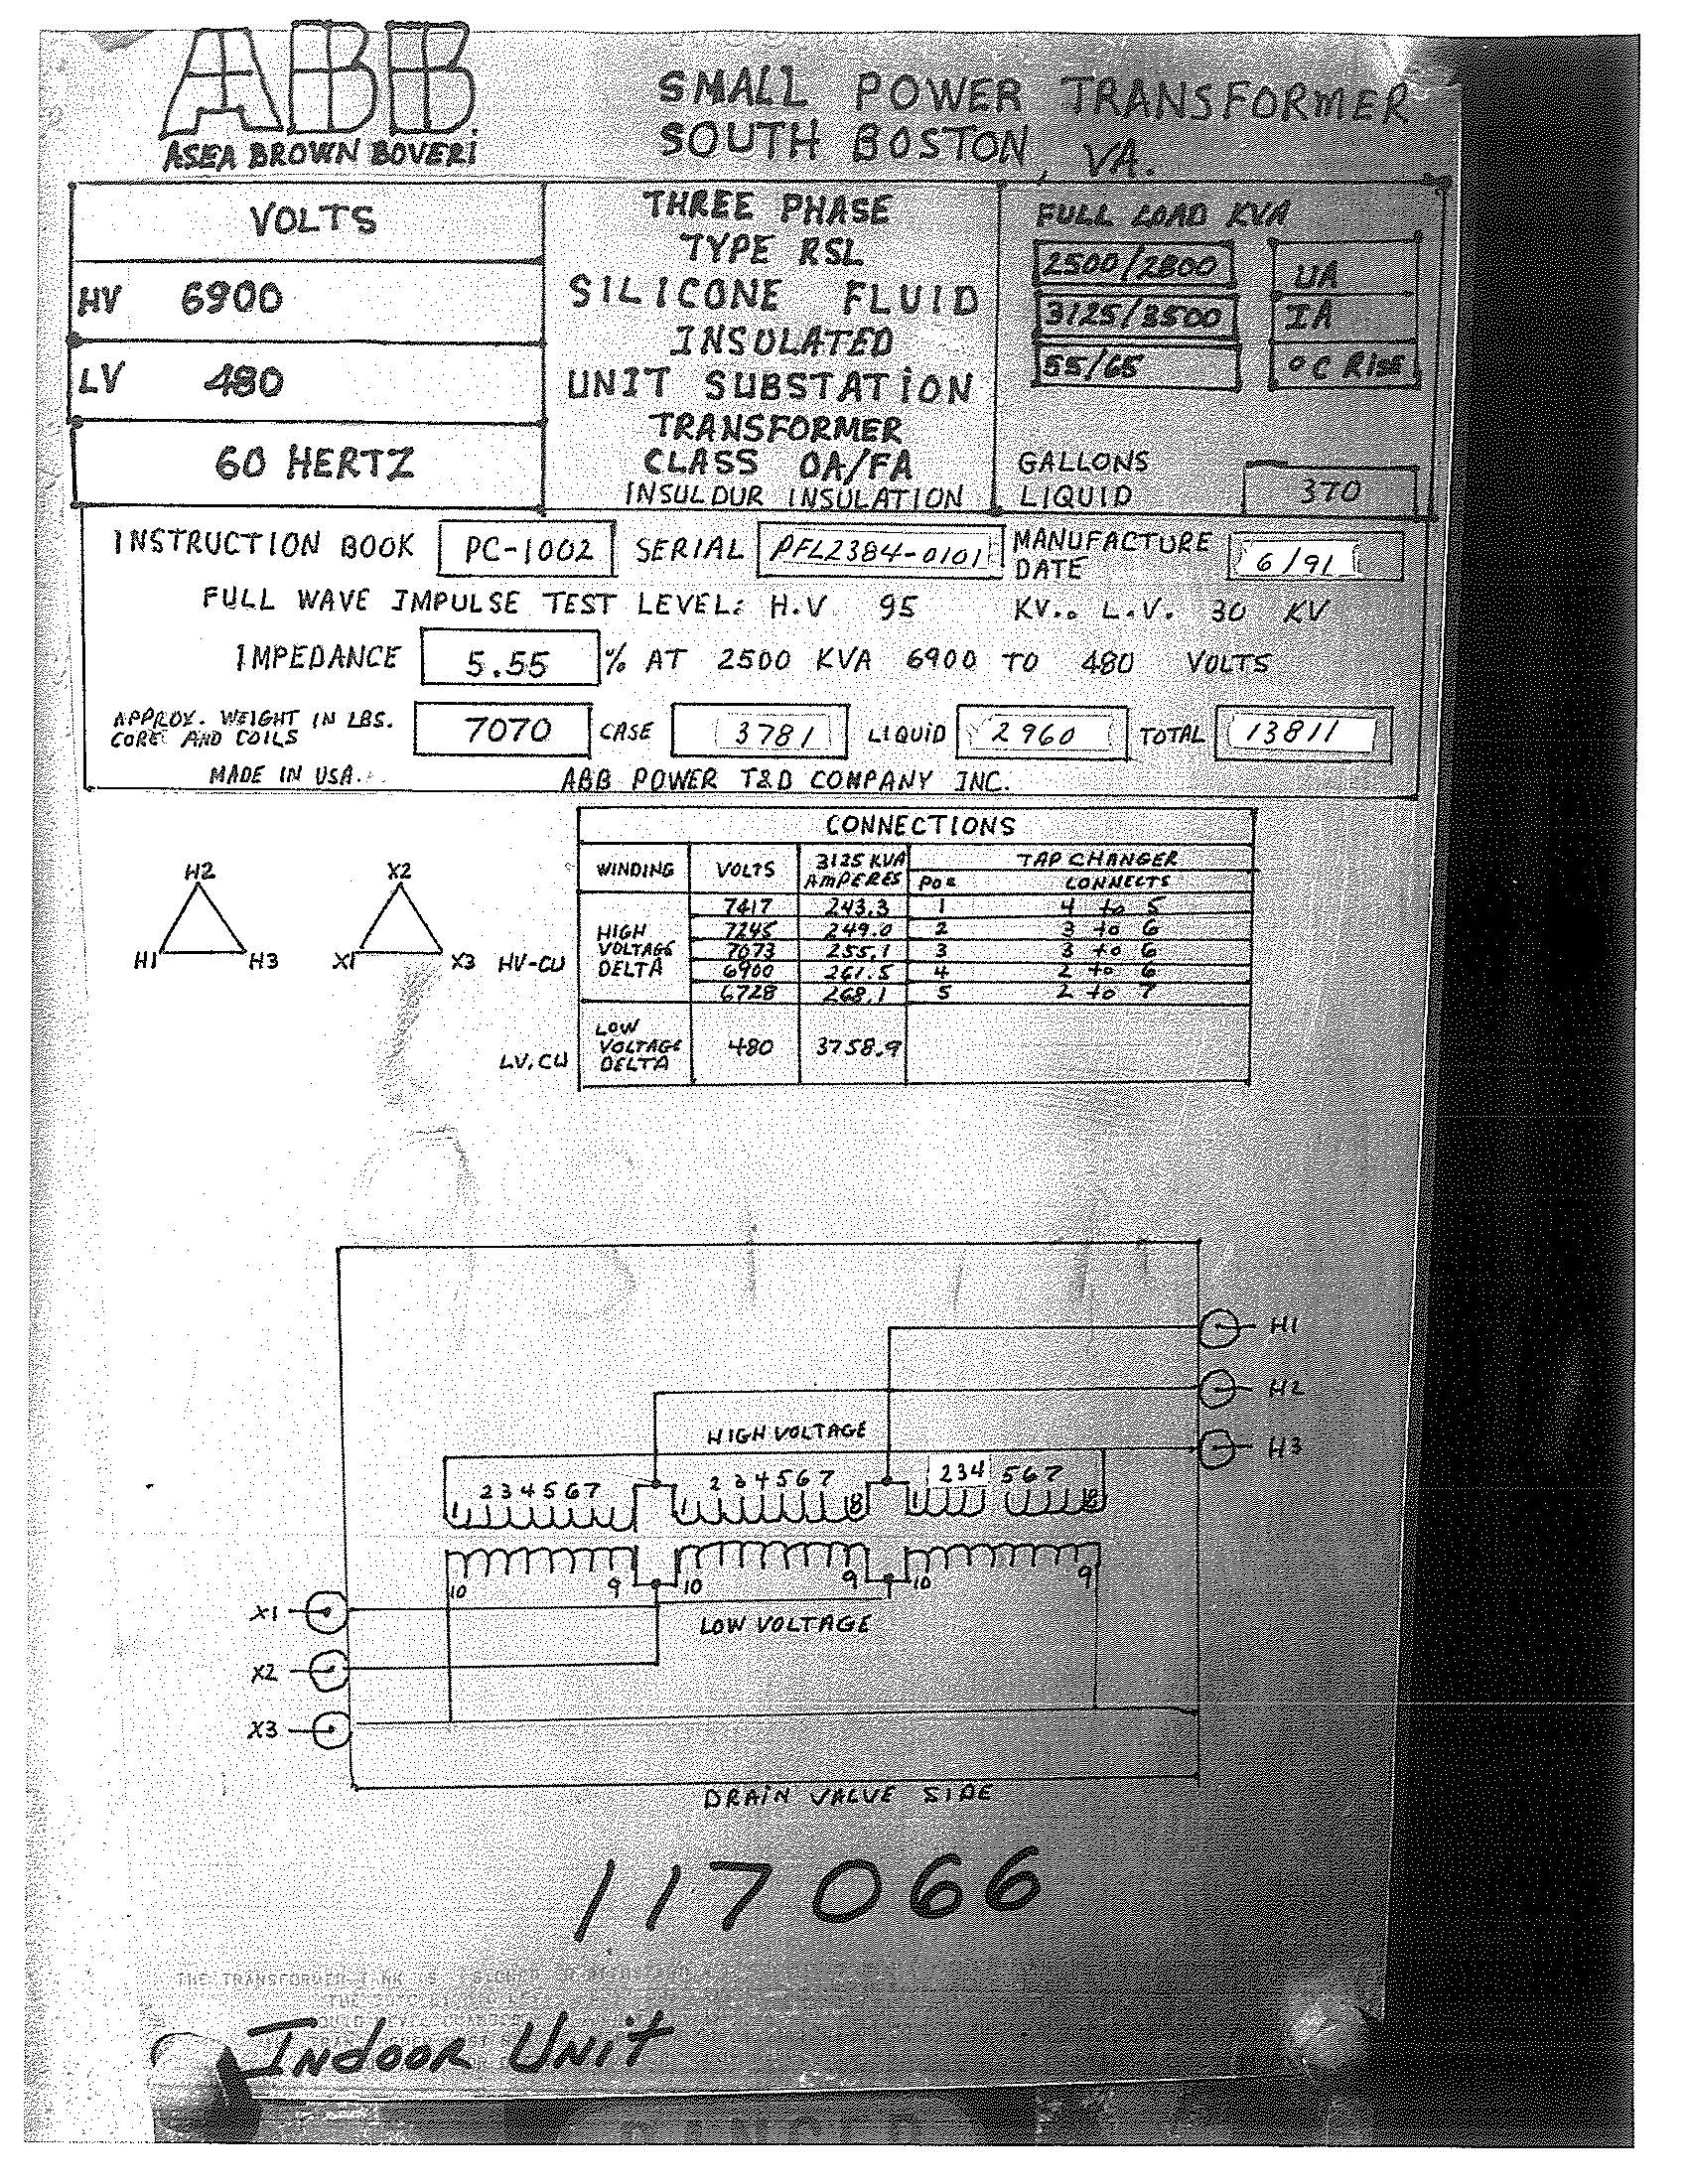 ABB
ASEA BROWN BOVERI
SMALL POWER TRANSFORMER
SOUTH BOSTON, VA.
VOLTS
HV 6900
LV 480
60 HERTZ
THREE PHASE
TYPE RSL
SILICONE FLUID
INSULATED
UNIT SUBSTATION
TRANSFORMER
CLASS OA/FA
INSULDUR INSULATION
FULL LOAD KVA
2500/2800 UA
3125/3500 IA
55/65 °C RISE
GALLONS
LIQUID 370
INSTRUCTION BOOK PC-1002 SERIAL PFL2384-0101 MANUFACTURE DATE 6/91
FULL WAVE IMPULSE TEST LEVEL: H.V 95 KV.. L.V. 30 KV
IMPEDANCE 5.55 % AT 2500 KVA 6900 TO 480 VOLTS
APPROX. WEIGHT IN LBS.
CORE AND COILS 7070 CASE 3781 LIQUID 2960 TOTAL 13811
MADE IN USA. ABB POWER T&D COMPANY INC.
CONNECTIONS
WINDING VOLTS 3125 KVA AMPERES TAP CHANGER
POS CONNECTS
HIGH VOLTAGE DELTA
7417 243.3 1 4 to 5
7245 249.0 2 3 to 6
7073 255.1 3 3 to 6
6900 261.5 4 2 to 6
6728 268.1 5 2 to 7
LOW VOLTAGE DELTA 480 3758.9
H2 X2
H1 H3 X1 X3 HV-CU
LV.CU
H1
H2
HIGH VOLTAGE
H3
1 2 3 4 5 6 7 1 2 3 4 5 6 7 8 1 2 3 4 5 6 7 8
10 9 10 9 10 9
X1
LOW VOLTAGE
X2
X3
DRAIN VALVE SIDE
117066
THE TRANSFORMER
Indoor Unit